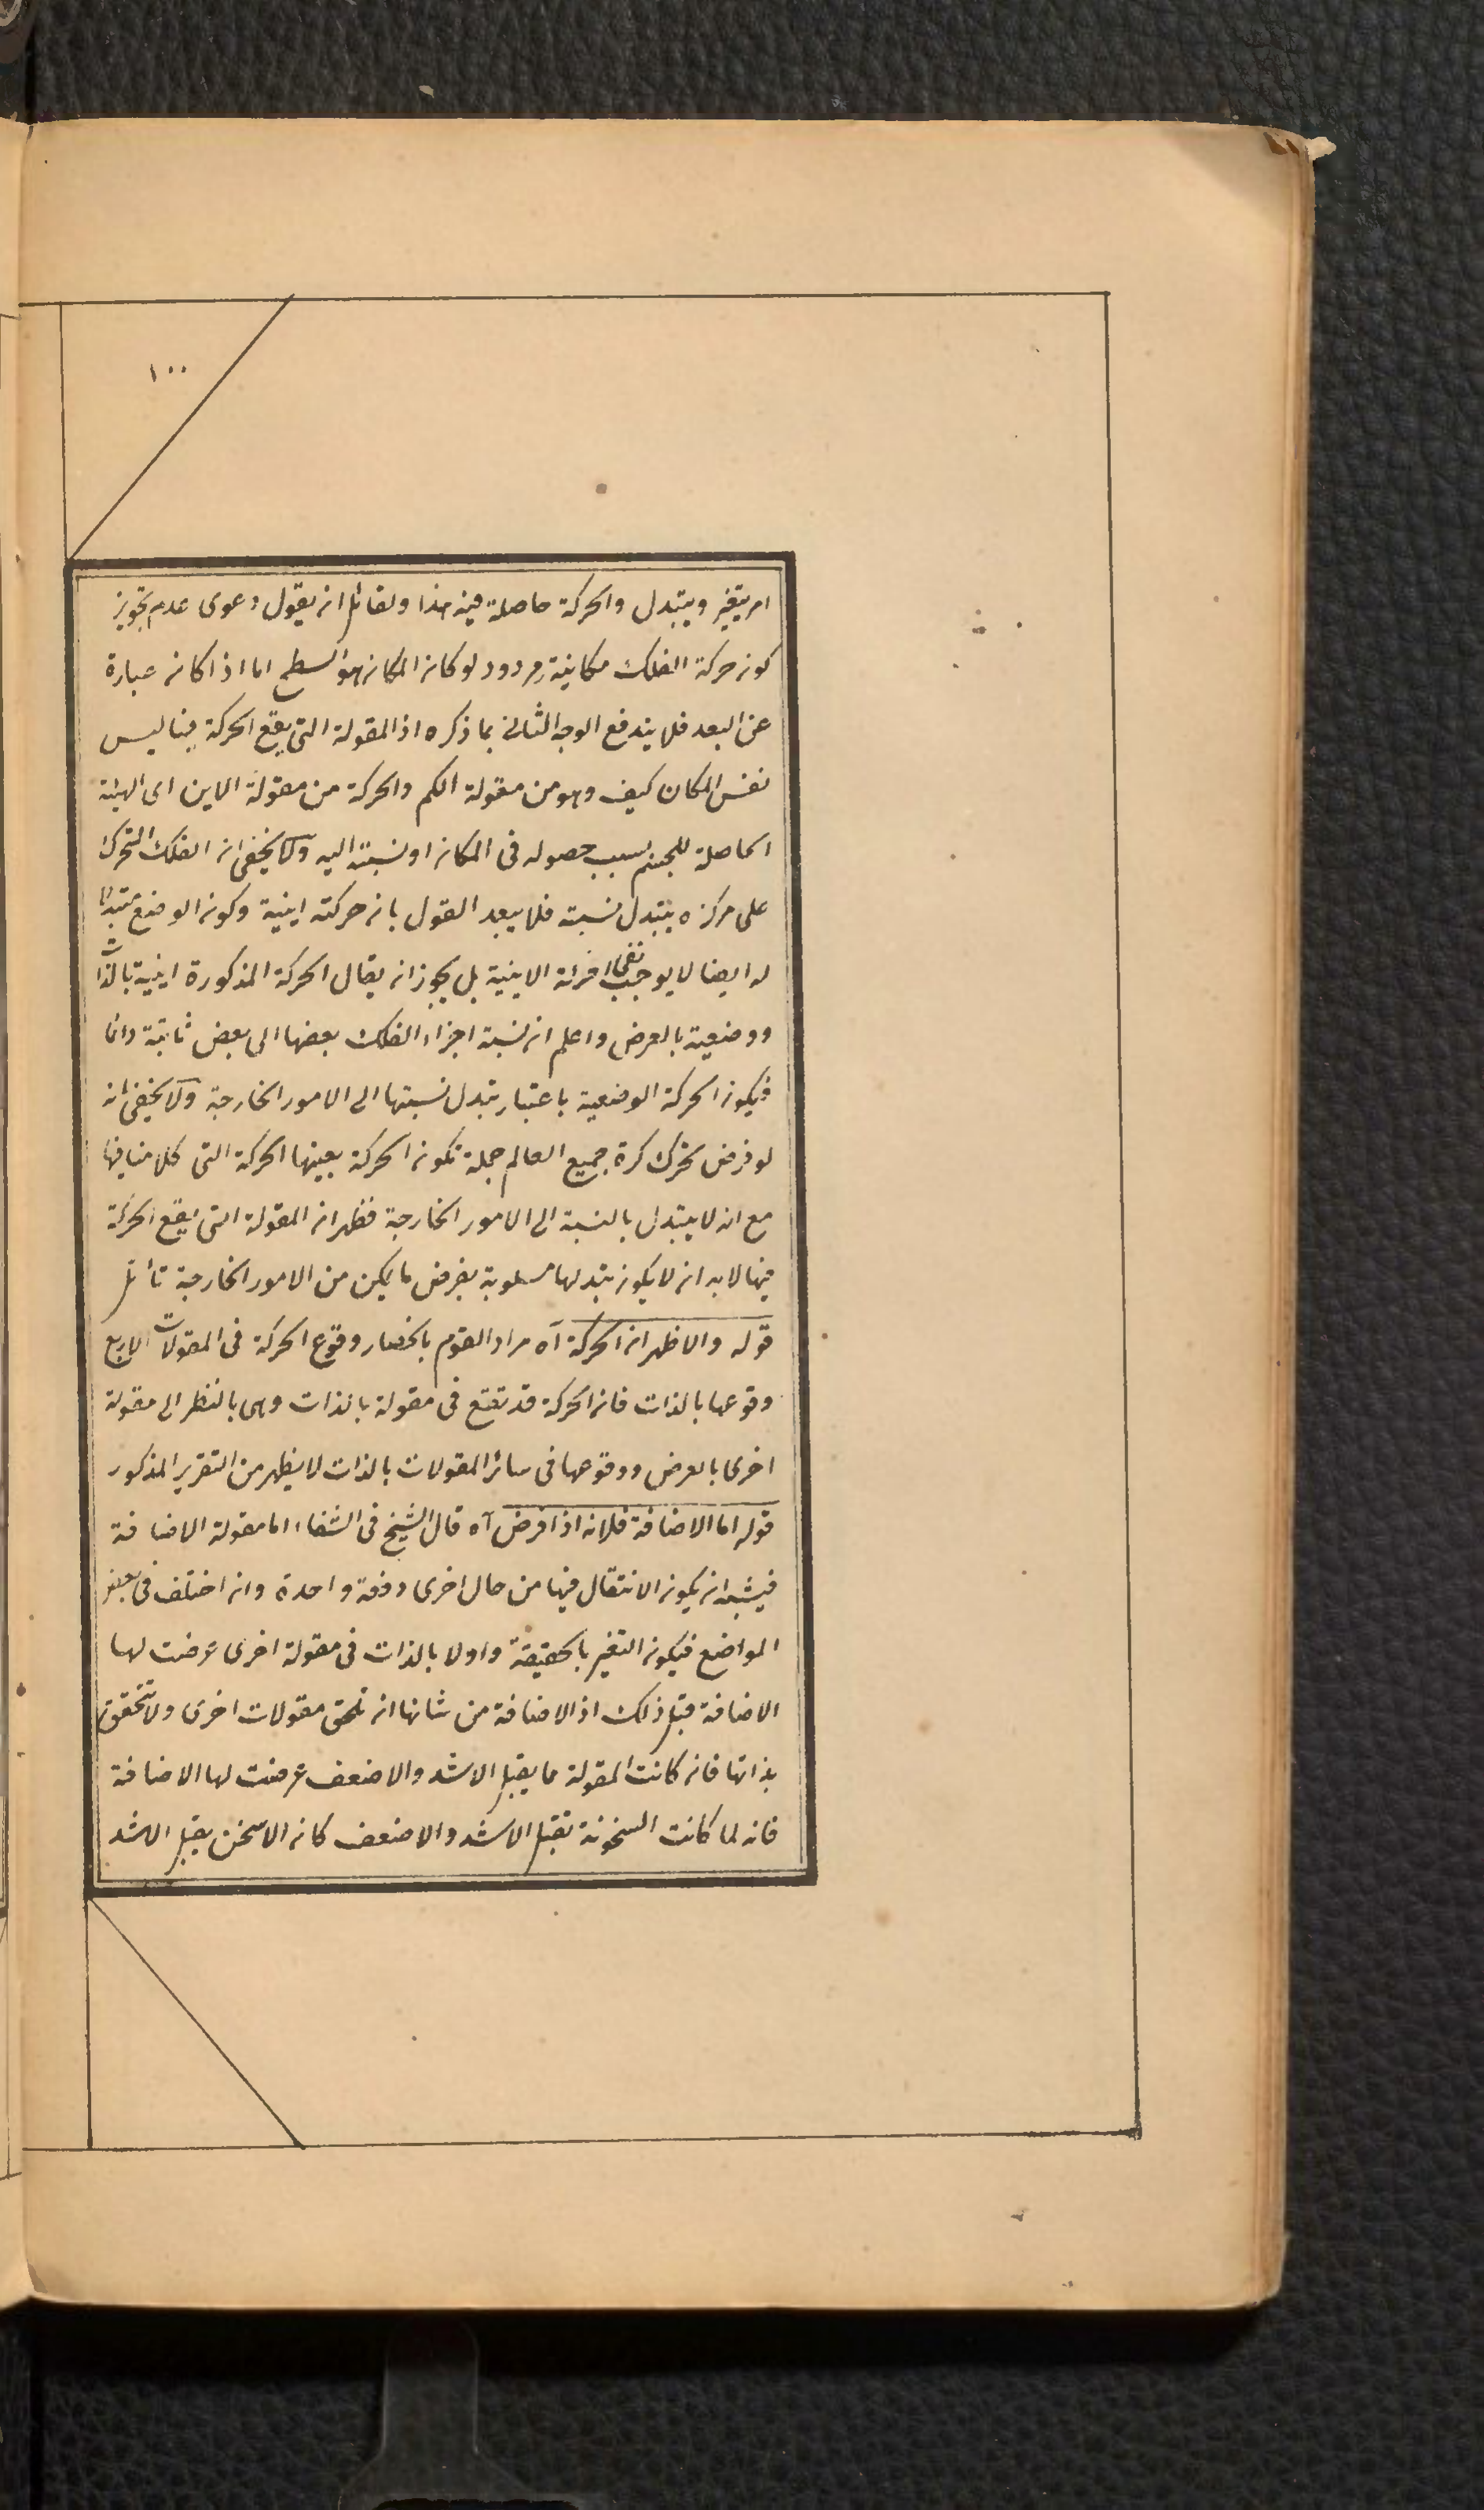 ١٠٠
امر يتغير ويتبدل والحركة حاصلة فيه هذا ولقائل ان يقول دعوى عدم تجويز
كون حركة الفلك مكانية مردود لو كان المكان هو السطح اما اذا كان عبارة
عن البعد فلا يندفع الوجه الثانى بما ذكره اذ المقولة التى يقع الحركة فيها ليس
نفس المكان كيف وهو من مقولة الكم والحركة من مقولة الاين اى الهيئة
الحاصلة للجسم بسبب حصوله فى المكان او نسبته اليه ولا يخفى ان الفلك المتحرك
على مركزه يتبدل نسبته فلا يبعد القول بان حركته اينية وكون الوضع متبدلا
له ايضا لا يوجب نفى الحركة الاينية بل يجوز ان يقال الحركة المذكورة اينية بالذات
ووضعية بالعرض واعلم ان نسبة اجزاء الفلك بعضها الى بعض ثابتة دائما
فيكون الحركة الوضعية باعتبار تبدل نسبتها الى الامور الخارجة ولا يخفى انه
لو فرض تحرك كرة جميع العالم جملة تكون الحركة بعينها الحركة التى كلامنا فيها
مع انه لا يتبدل بالنسبة الى الامور الخارجة فظهر ان المقولة التى يقع الحركة
فيها لابد ان لا يكون تبدلها مسلوبة بفرض ما يمكن من الامور الخارجة تأمل
قوله والاظهر ان الحركة آه مراد القوم بانحصار وقوع الحركة فى المقولات الاربع
وقوعها بالذات فان الحركة قد تقع فى مقولة بالذات وهى بالنظر الى مقولة
اخرى بالعرض ووقوعها فى سائر المقولات بالذات لا يظهر من التقرير المذكور
قوله اما الاضافة فلانه اذا فرض آه قال الشيخ فى الشفاء اما مقولة الاضافة
فيشبه ان يكون الانتقال فيها من حال اخرى دفعة واحدة وان اختلف فى بعض
المواضع فيكون التغير بالحقيقة واولا بالذات فى مقولة اخرى عرضت لها
الاضافة قبل ذلك اذ الاضافة من شانها ان تلحق مقولات اخرى ولا تتحقق
بذاتها فان كانت المقولة مما يقبل الاشد والاضعف عرضت لها الاضافة
فانه لما كانت السخونة تقبل الاشد والاضعف كان الاسخن يقبل الاشد